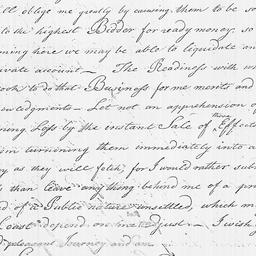 ll oblige me greatly by causing them to be so
to the highest Bidder for ready money, so
ning here we may be able to liquidate an
rivate account— The Readiness with w
ook to do that Business for me merits and
owledgments— Let not an apprehension of
ring Loss by the instant Sale of these Effect
in turnening them immediately into a
y as they will fetch, for I would rather sub
s than leave any thing behind me of a pr
d of a Public nature unsettled, which m
Coast depend on me adjust— I wish y
d pleasant Journey and am